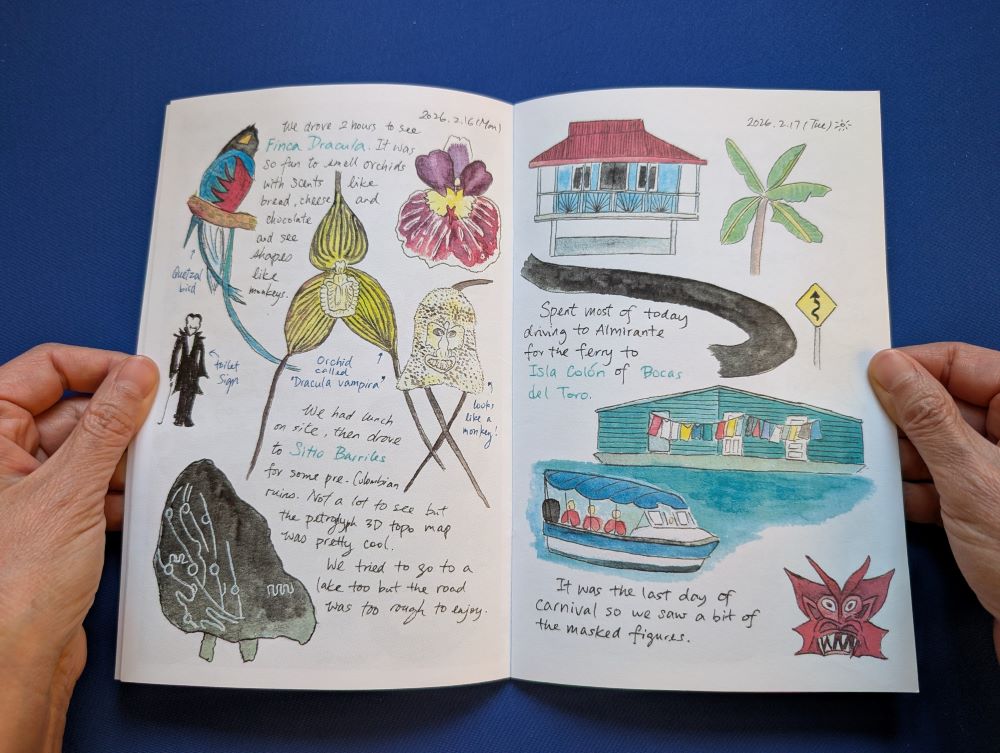 2026.2.16 (Mon)
We drove 2 hours to see
Finca Dracula. It was
so fun to smell orchids
with scents like
bread, cheese and
chocolate
and see
shapes
like
monkeys.
Quetzal
bird
toilet
sign
Orchid
called
"Dracula vampira"
looks
like a
monkey!
We had lunch
on site, then drove
to Sitio Barriles
for some pre-Colombian
ruins. Not a lot to see but
the petroglyph 3D topo map
was pretty cool.
We tried to go to a
lake too but the road
was too rough to enjoy.
2026.2.17 (Tue)
Spent most of today
driving to Almirante
for the ferry to
Isla Colón of Bocas
del Toro.
It was the last day of
Carnival so we saw a bit of
the masked figures.